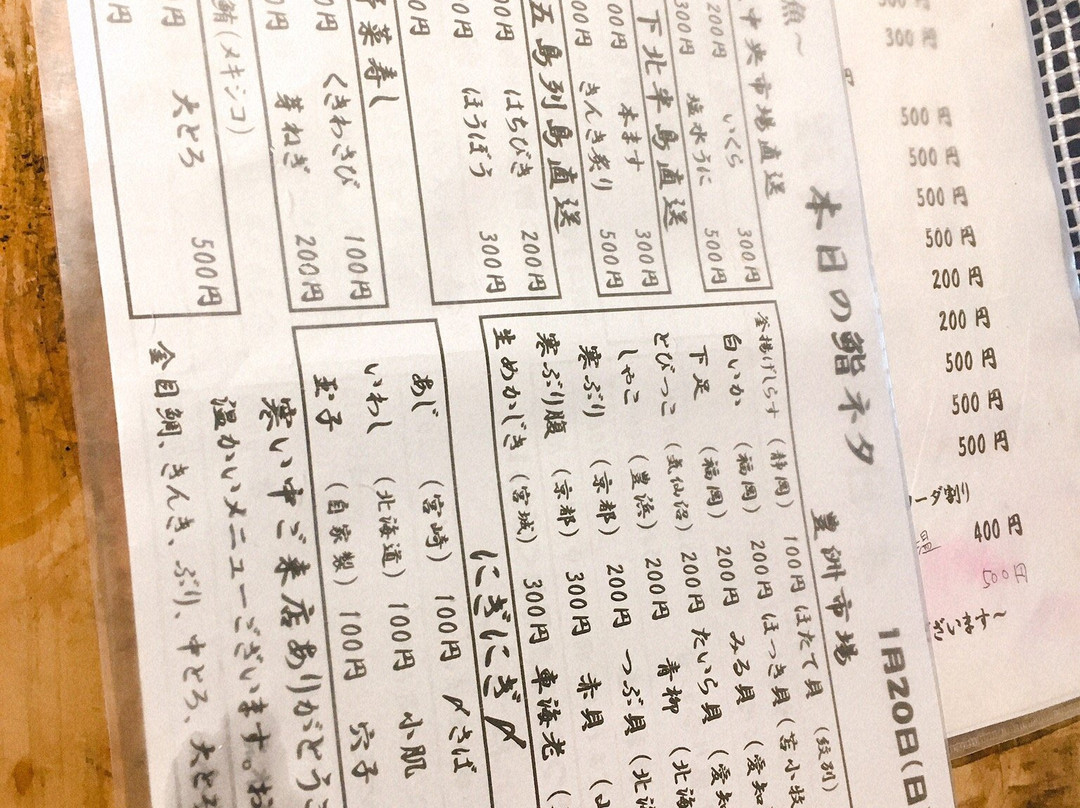 本日の鮨ネタ 豊洲市場 1月20日(日
魚～
中央市場直送
いくら 300円
200円 塩水うに 500円
300円
下北半島直送
本ます 300円
きんき炙り 500円
五島列島直送
はちびき 200円
ほうぼう 300円
野菜寿し
くきわさび 100円
芽ねぎ 200円
鮪(メキシコ)
大とろ 500円
釜揚げしらす(静岡) 100円 ほたて貝(紋別)
白いか(福岡) 200円 ほっき貝(苫小牧
下足(福岡) 200円 みる貝(愛知
とびっこ(気仙沼) 200円 たいら貝(愛知
しゃこ(豊浜) 200円 青柳(北海
寒ぶり(京都) 200円 つぶ貝(北海
寒ぶり腹(京都) 300円 赤貝
生めかじき(宮城) 300円 車海老
にぎにぎ〆
あじ(宮崎) 100円 〆さば
いわし(北海道) 100円 小肌
玉子(自家製) 100円 穴子
寒い中ご来店ありがとう
温かいメニューございます。お
金目鯛、きんき、ぶり、中とろ、大とろ
300円
500円
500円
500円
500円
200円
200円
500円
500円
500円
ーダ割り
400円
500円
ざいます～